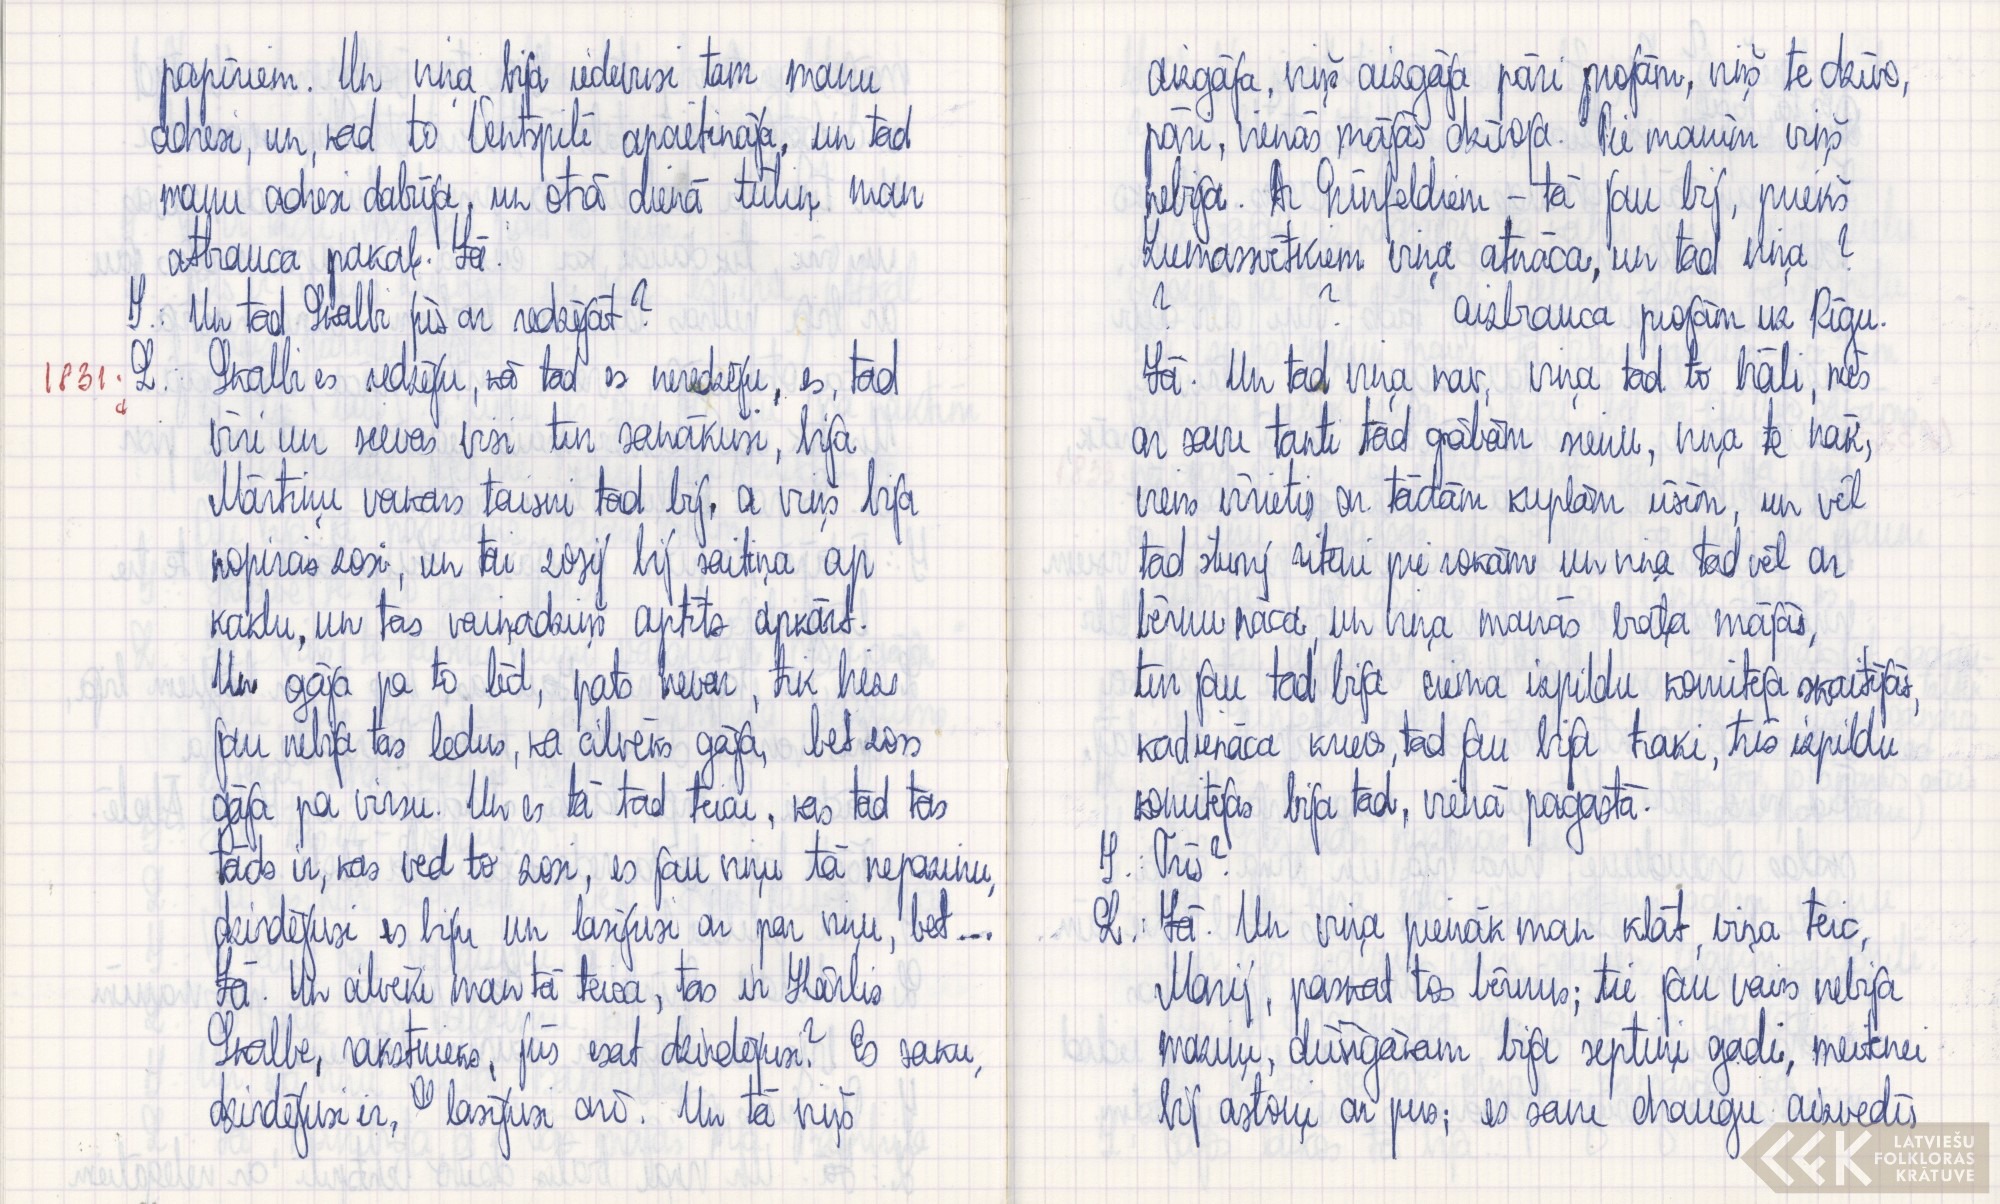 papīriem. Un viņa bija iedevusi tam manu
adresi, un, kad to Ventspilī apcietināja, un tad
manu adresi dabūja, un otrā dienā tūliņ man
atbrauca pakaļ. Jā.
J.: Un tad Skalbi jūs ar redzējāt?
1831. L.: Skalbi es redzēju, kā tad es neredzēju, es, tad
vīri un sievas visi tur sanākuši, bija
Mārtiņu vakars taisni tad bij, a viņš bija
nopircis zosi, un tai zosij bij saitiņa ap
kaklu, un tas vainadziņš aptīts apkārt.
Un gāja pa to lēd, pats nevar, tik biezs
jau nebija tas ledus, ka cilvēks gāja, bet zoss
gāja pa virsu. Un es tā tad teicu, kas tad tas
tāds ir, kas ved to zosi, es jau viņu tā nepazinu,
dzirdējusi es biju un lasījusi ar par viņu, bet...
Jā. Un cilvēki man tā teica, tas ir Kārlis
Skalbe, rakstnieks, jūs esat dzirdējusi? Es saku,
dzirdējusi ir, lasījusi arī. Un tā viņš
aizgāja, viņš aizgāja pāri projām, viņš te dzīvo,
pāri, vienās mājās dzīvoja. Pie manīm viņš
nebija. Ar Grīnfeldiem – tā jau bij, priekš
Ziemassvētkiem viņa atnāca, un tad viņa ?
? ? aizbrauca projām uz Rīgu.
Jā. Un tad viņa nav, viņa tad to brāli, mēs
ar savu tanti tad grābām sienu, viņa te nāk,
viens vīrietis ar tādām kuplām ūsām, un vēl
tad stumj riteni pie rokām un viņa tad vēl ar
bērnu nāca, un viņa manās brāļa mājās,
tur jau tad bija ciema izpildu komiteja skaitījās,
kad ienāca krievs, tad jau bija traki, trīs izpildu
komitejas bija tad, vienā pagastā.
J.: Trīs?
L.: Jā. Un viņa pienāk man klāt, viņa teic,
Marij, paskat tos bērnus; tie jau vairs nebija
maziņi, dēlišķam bija septiņi gadi, meitenei
bij astoņi ar pus; es savu draugu aizvedīs
LATVIEŠU
FOLKLORAS
KRĀTUVE